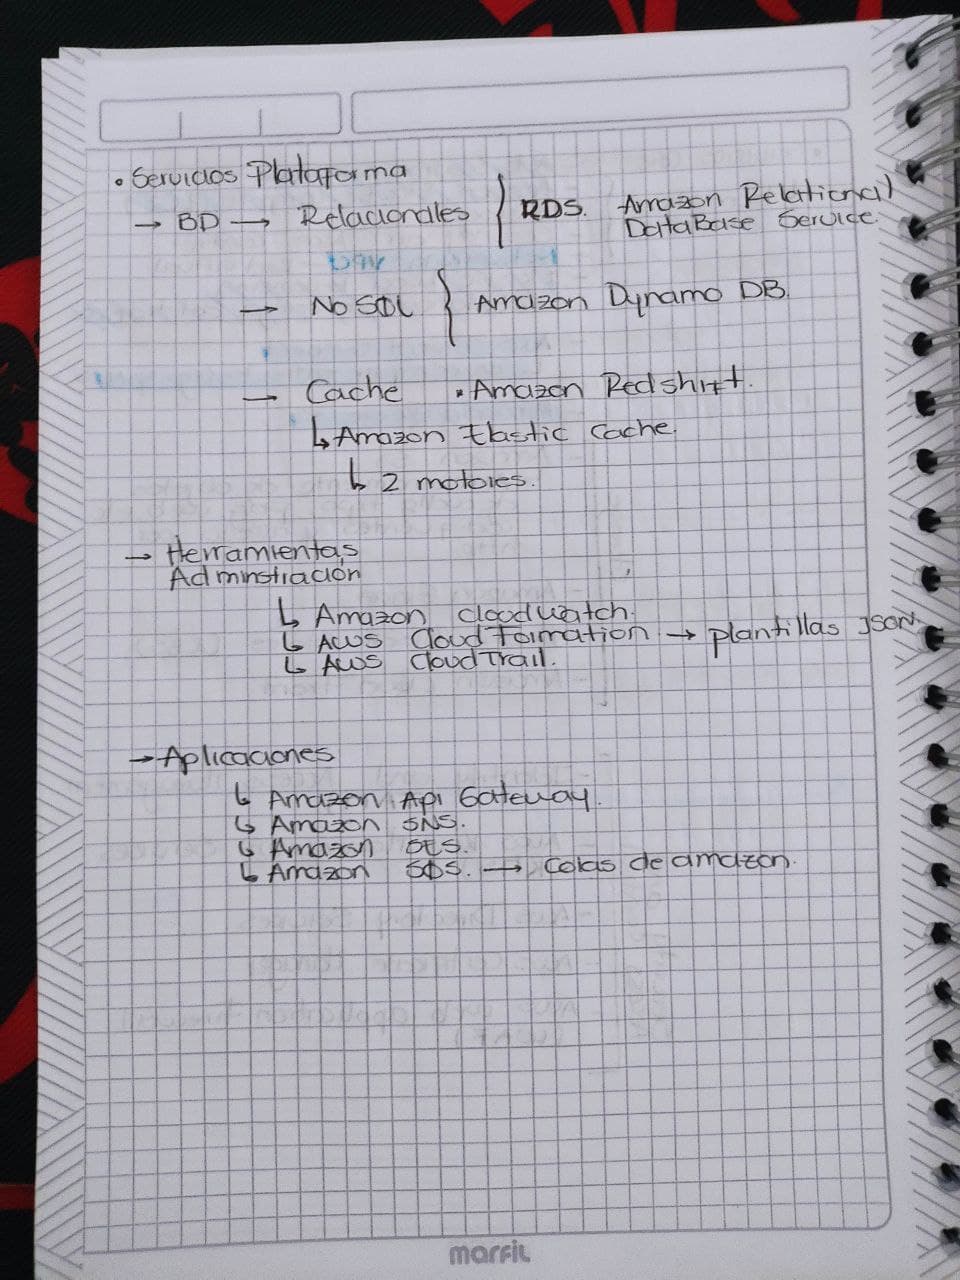 • Servicios Plataforma
→ BD → Relacionales } RDS. Amazon Relational
DataBase Service.
→ No SQL } Amazon Dynamo DB.
→ Cache • Amazon Redshift.
↳ Amazon Elastic Cache.
↳ 2 motores.
→ Herramientas
Adminstración
↳ Amazon Cloodwatch.
↳ AWS CloudFormation → plantillas JSON.
↳ AWS CloudTrail.
→ Aplicaciones
↳ Amazon Api Gateway.
↳ Amazon SNS.
↳ Amazon SES.
↳ Amazon SQS. → Colas de amazon.
marfil